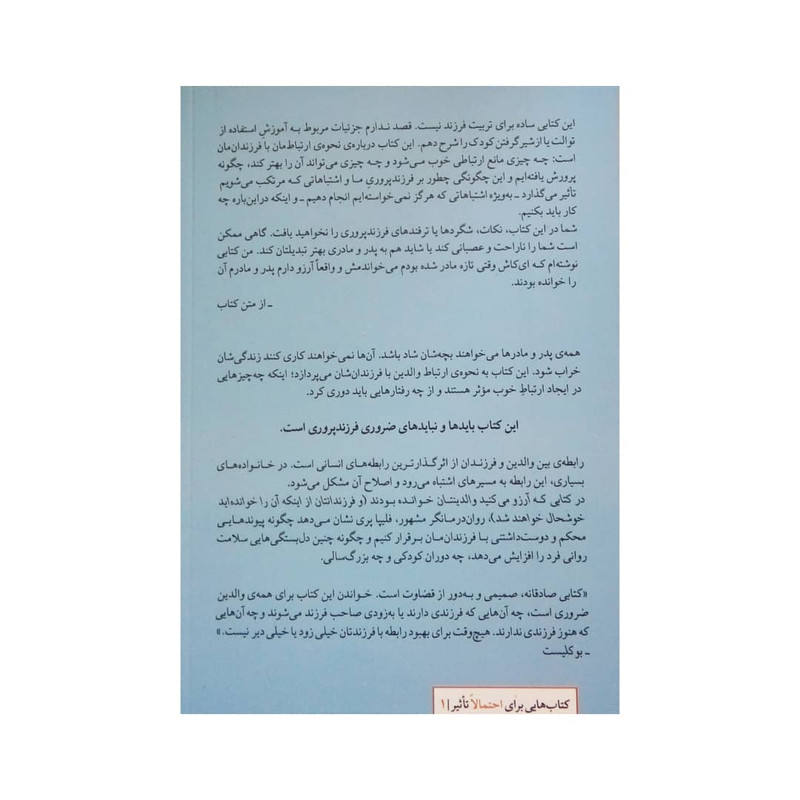 این کتابی ساده برای تربیت فرزند نیست. قصد ندارم جزئیات مربوط به آموزش استفاده از
توالت یا ازشیرگرفتن کودک را شرح دهم. این کتاب درباره‌ی نحوه‌ی ارتباط‌مان با فرزندان‌مان
است: چه چیزی مانع ارتباطی خوب می‌شود و چه چیزی می‌تواند آن را بهتر کند، چگونه
پرورش یافته‌ایم و این چگونگی چطور بر فرزندپروریِ ما و اشتباهاتی که مرتکب می‌شویم
تأثیر می‌گذارد ـ به‌ویژه اشتباهاتی که هرگز نمی‌خواسته‌ایم انجام دهیم ـ و اینکه دراین‌باره چه
کار باید بکنیم.
شما در این کتاب، نکات، شگردها یا ترفندهای فرزندپروری را نخواهید یافت. گاهی ممکن
است شما را ناراحت و عصبانی کند یا شاید هم به پدر و مادری بهتر تبدیلتان کند. من کتابی
نوشته‌ام که ای‌کاش وقتی تازه مادر شده بودم می‌خواندمش و واقعاً آرزو دارم پدر و مادرم آن
را خوانده بودند.
ـ از متن کتاب
همه‌ی پدر و مادرها می‌خواهند بچه‌شان شاد باشد. آن‌ها نمی‌خواهند کاری کنند زندگی‌شان
خراب شود. این کتاب به نحوه‌ی ارتباط والدین با فرزندان‌شان می‌پردازد؛ اینکه چه‌چیزهایی
در ایجاد ارتباطِ خوب مؤثر هستند و از چه رفتارهایی باید دوری کرد.
این کتاب بایدها و نبایدهای ضروری فرزندپروری است.
رابطه‌ی بین والدین و فرزندان از اثرگذارترین رابطه‌های انسانی است. در خانواده‌های
بسیاری، این رابطه به مسیرهای اشتباه می‌رود و اصلاح آن مشکل می‌شود.
در کتابی که آرزو می‌کنید والدینتان خوانده بودند (و فرزندانتان از اینکه آن را خوانده‌اید
خوشحال خواهند شد)، روان‌درمانگر مشهور، فلیپا پری نشان می‌دهد چگونه پیوندهایی
محکم و دوست‌داشتنی با فرزندان‌مان برقرار کنیم و چگونه چنین دل‌بستگی‌هایی سلامت
روانی فرد را افزایش می‌دهد، چه دوران کودکی و چه بزرگ‌سالی.
«کتابی صادقانه، صمیمی و به‌دور از قضاوت است. خواندن این کتاب برای همه‌ی والدین
ضروری است، چه آن‌هایی که فرزندی دارند یا به‌زودی صاحب فرزند می‌شوند و چه آن‌هایی
که هنوز فرزندی ندارند. هیچ‌وقت برای بهبود رابطه با فرزندتان خیلی زود یا خیلی دیر نیست.»
ـ بوکلیست
کتاب‌هایی برای احتمالاً تأثیر | ۱